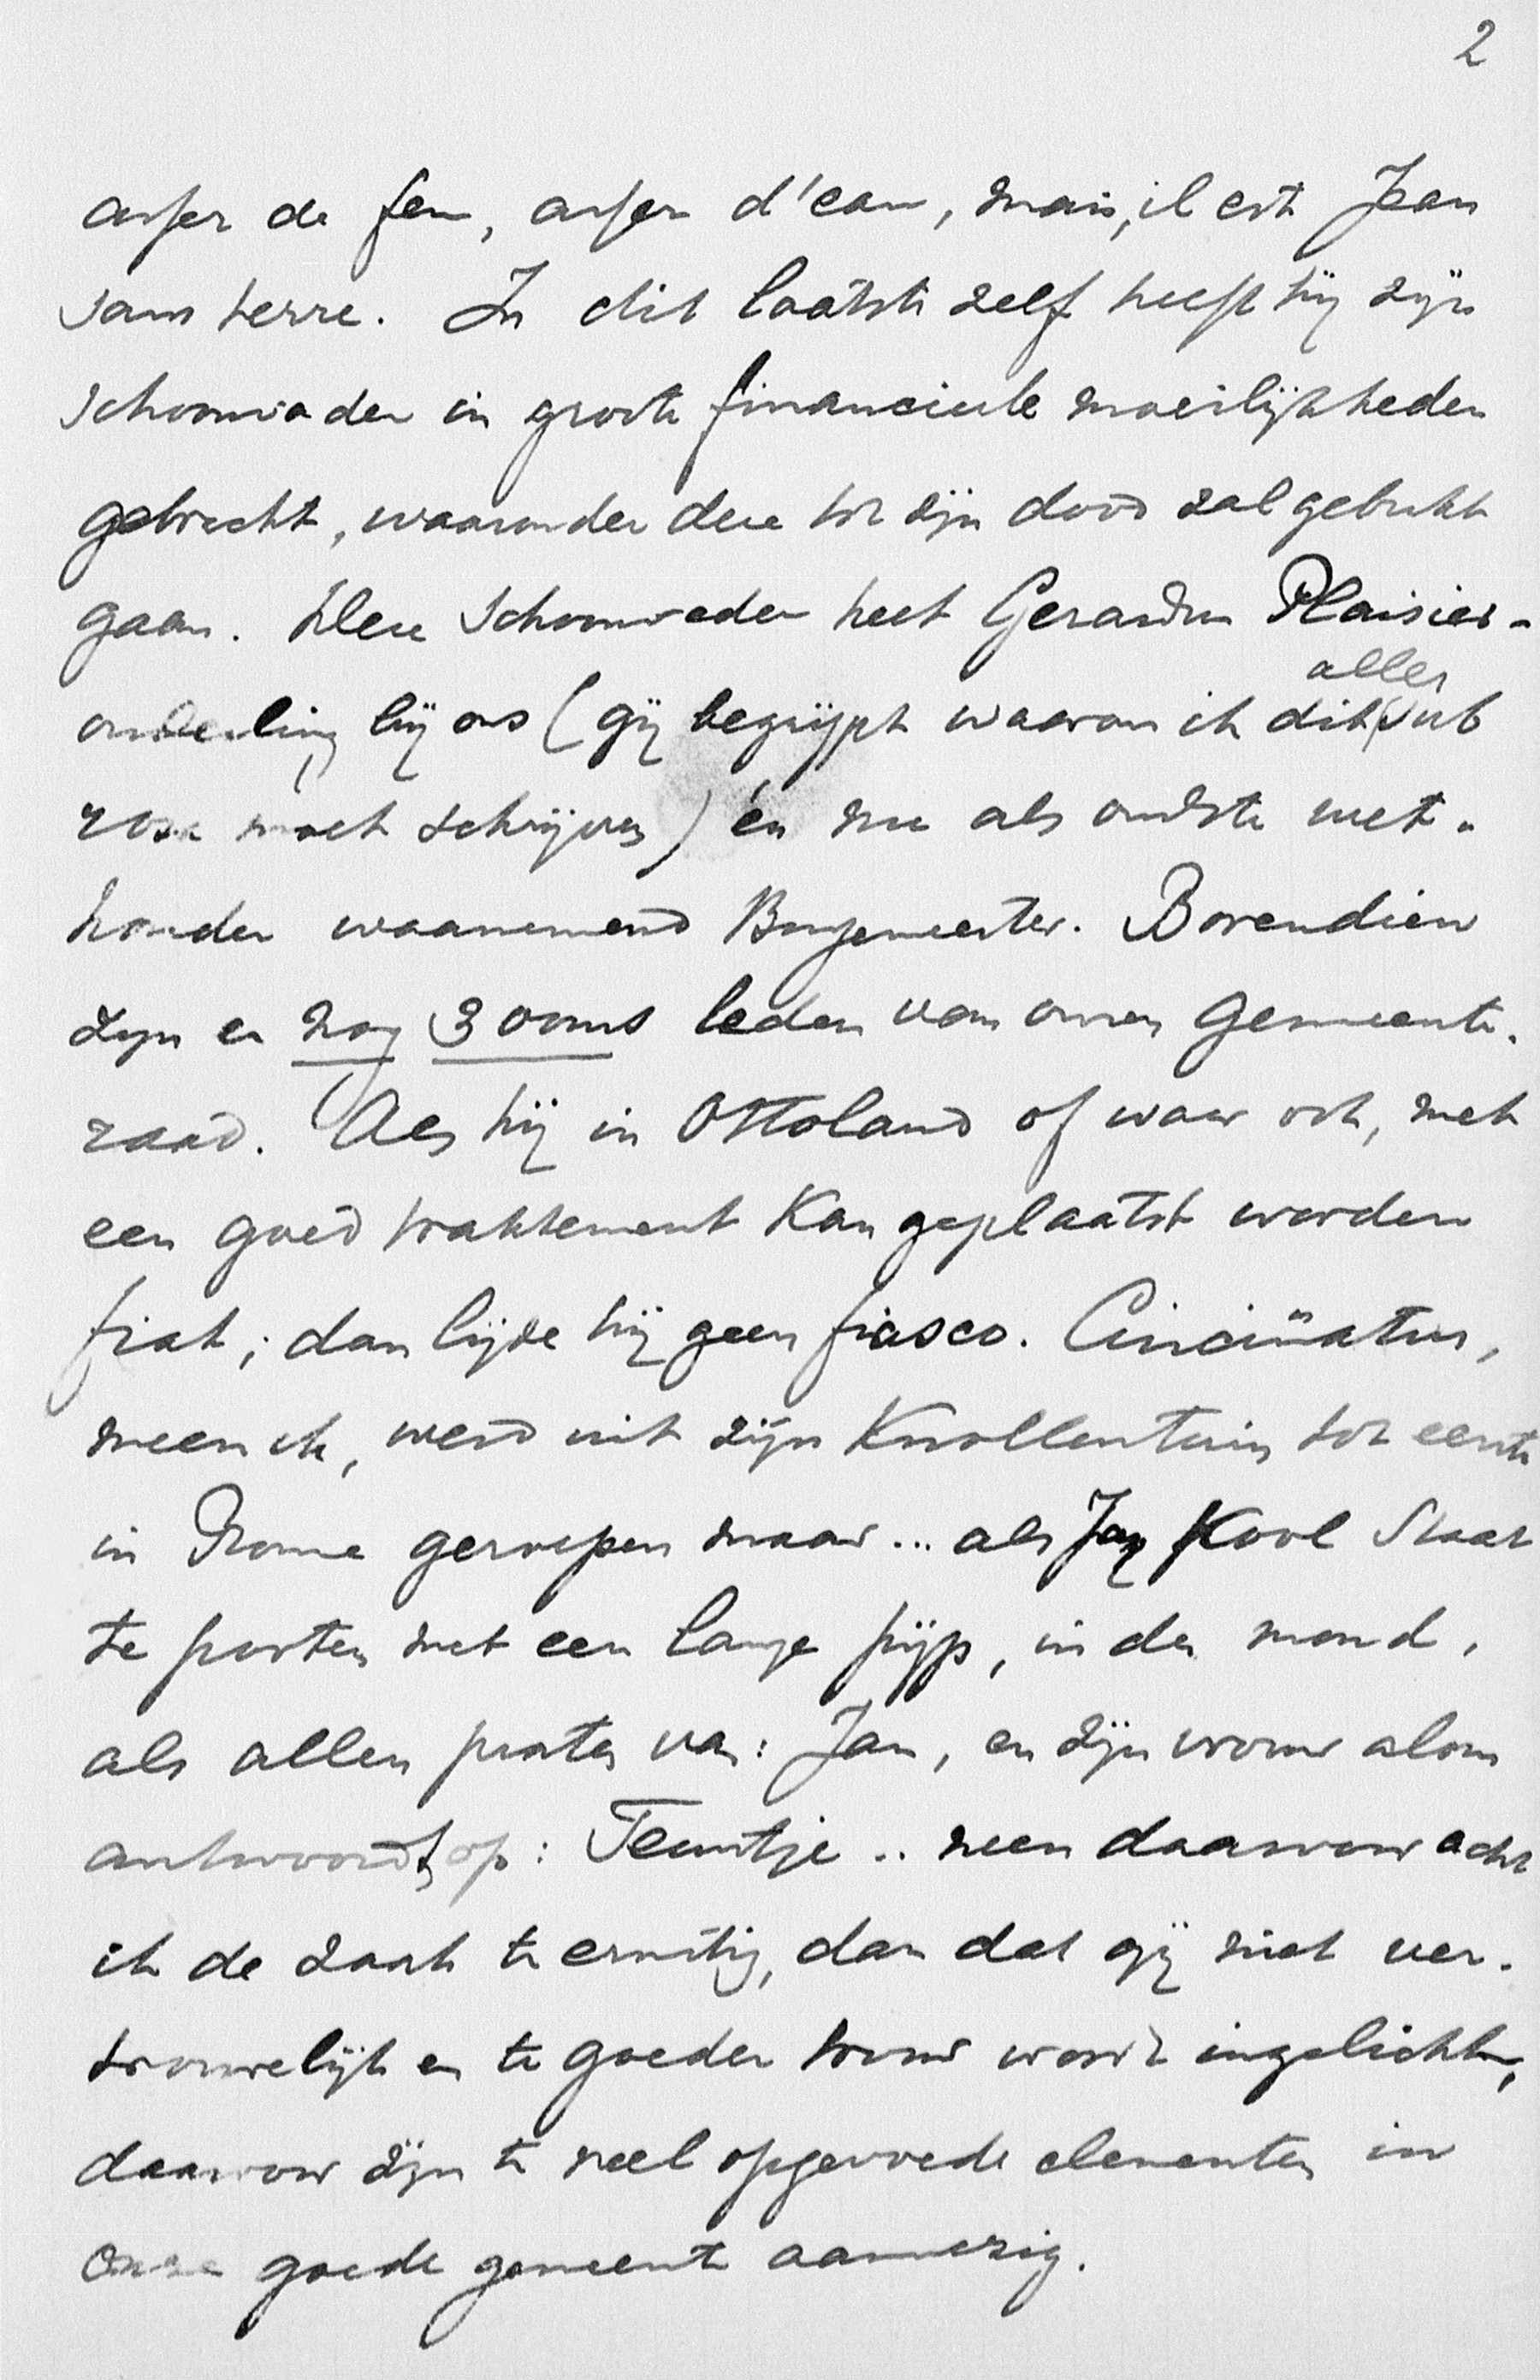 2
assez de feu, assez d'eau, mais, il est Jean
sans terre. In dit laatste zelf heeft hij zijn
schoonvader in groote financieele moeilijkheden
gebracht, waaronder deze tot zijn dood zal gebukt
gaan. Deze schoonvader heet Gerardus Plaisier -
ouderling bij ons (gij begrijpt waarom ik dit alles sub
rosa moet schrijven) én nu als oudste wet-
houder waarnemend Burgemeester. Bovendien
zijn er nog 3 ooms leden van onzen Gemeente-
raad. Als hij in Ottoland of waar ook, met
een goed traktement kan geplaatst worden
fiat; dan lijde hij geen fiasco. Cincinatus,
meen ik, werd uit zijn Knollentuin tot eerste
in Rome geroepen maar... als Jan Kool staat
te pooten met een lange pijp, in den mond,
als allen praten van: Jan, en zijn vrouw alom
antwoordt op: Teuntje .. neen daarvoor acht
ik de zaak te ernstig, dan dat gij niet ver-
trouwelijk en te goeder trouw wordt ingelicht,
daarvoor zijn te veel opgevoede elementen in
onze goede gemeente aanwezig.